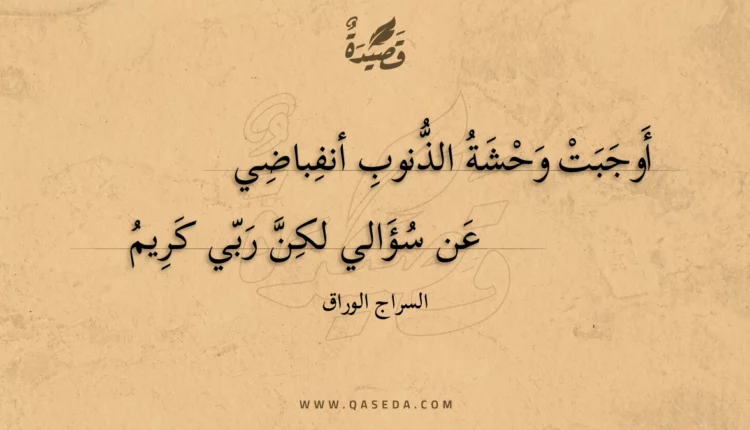 قَصِيْدَةٌ
أَوجَبَتْ وَحْشَةُ الذُّنوبِ أنفِباضِي
عَن سُؤَالي لكِنَّ رَبّي كَرِيمُ
السراج الوراق
WWW.QASEDA.COM